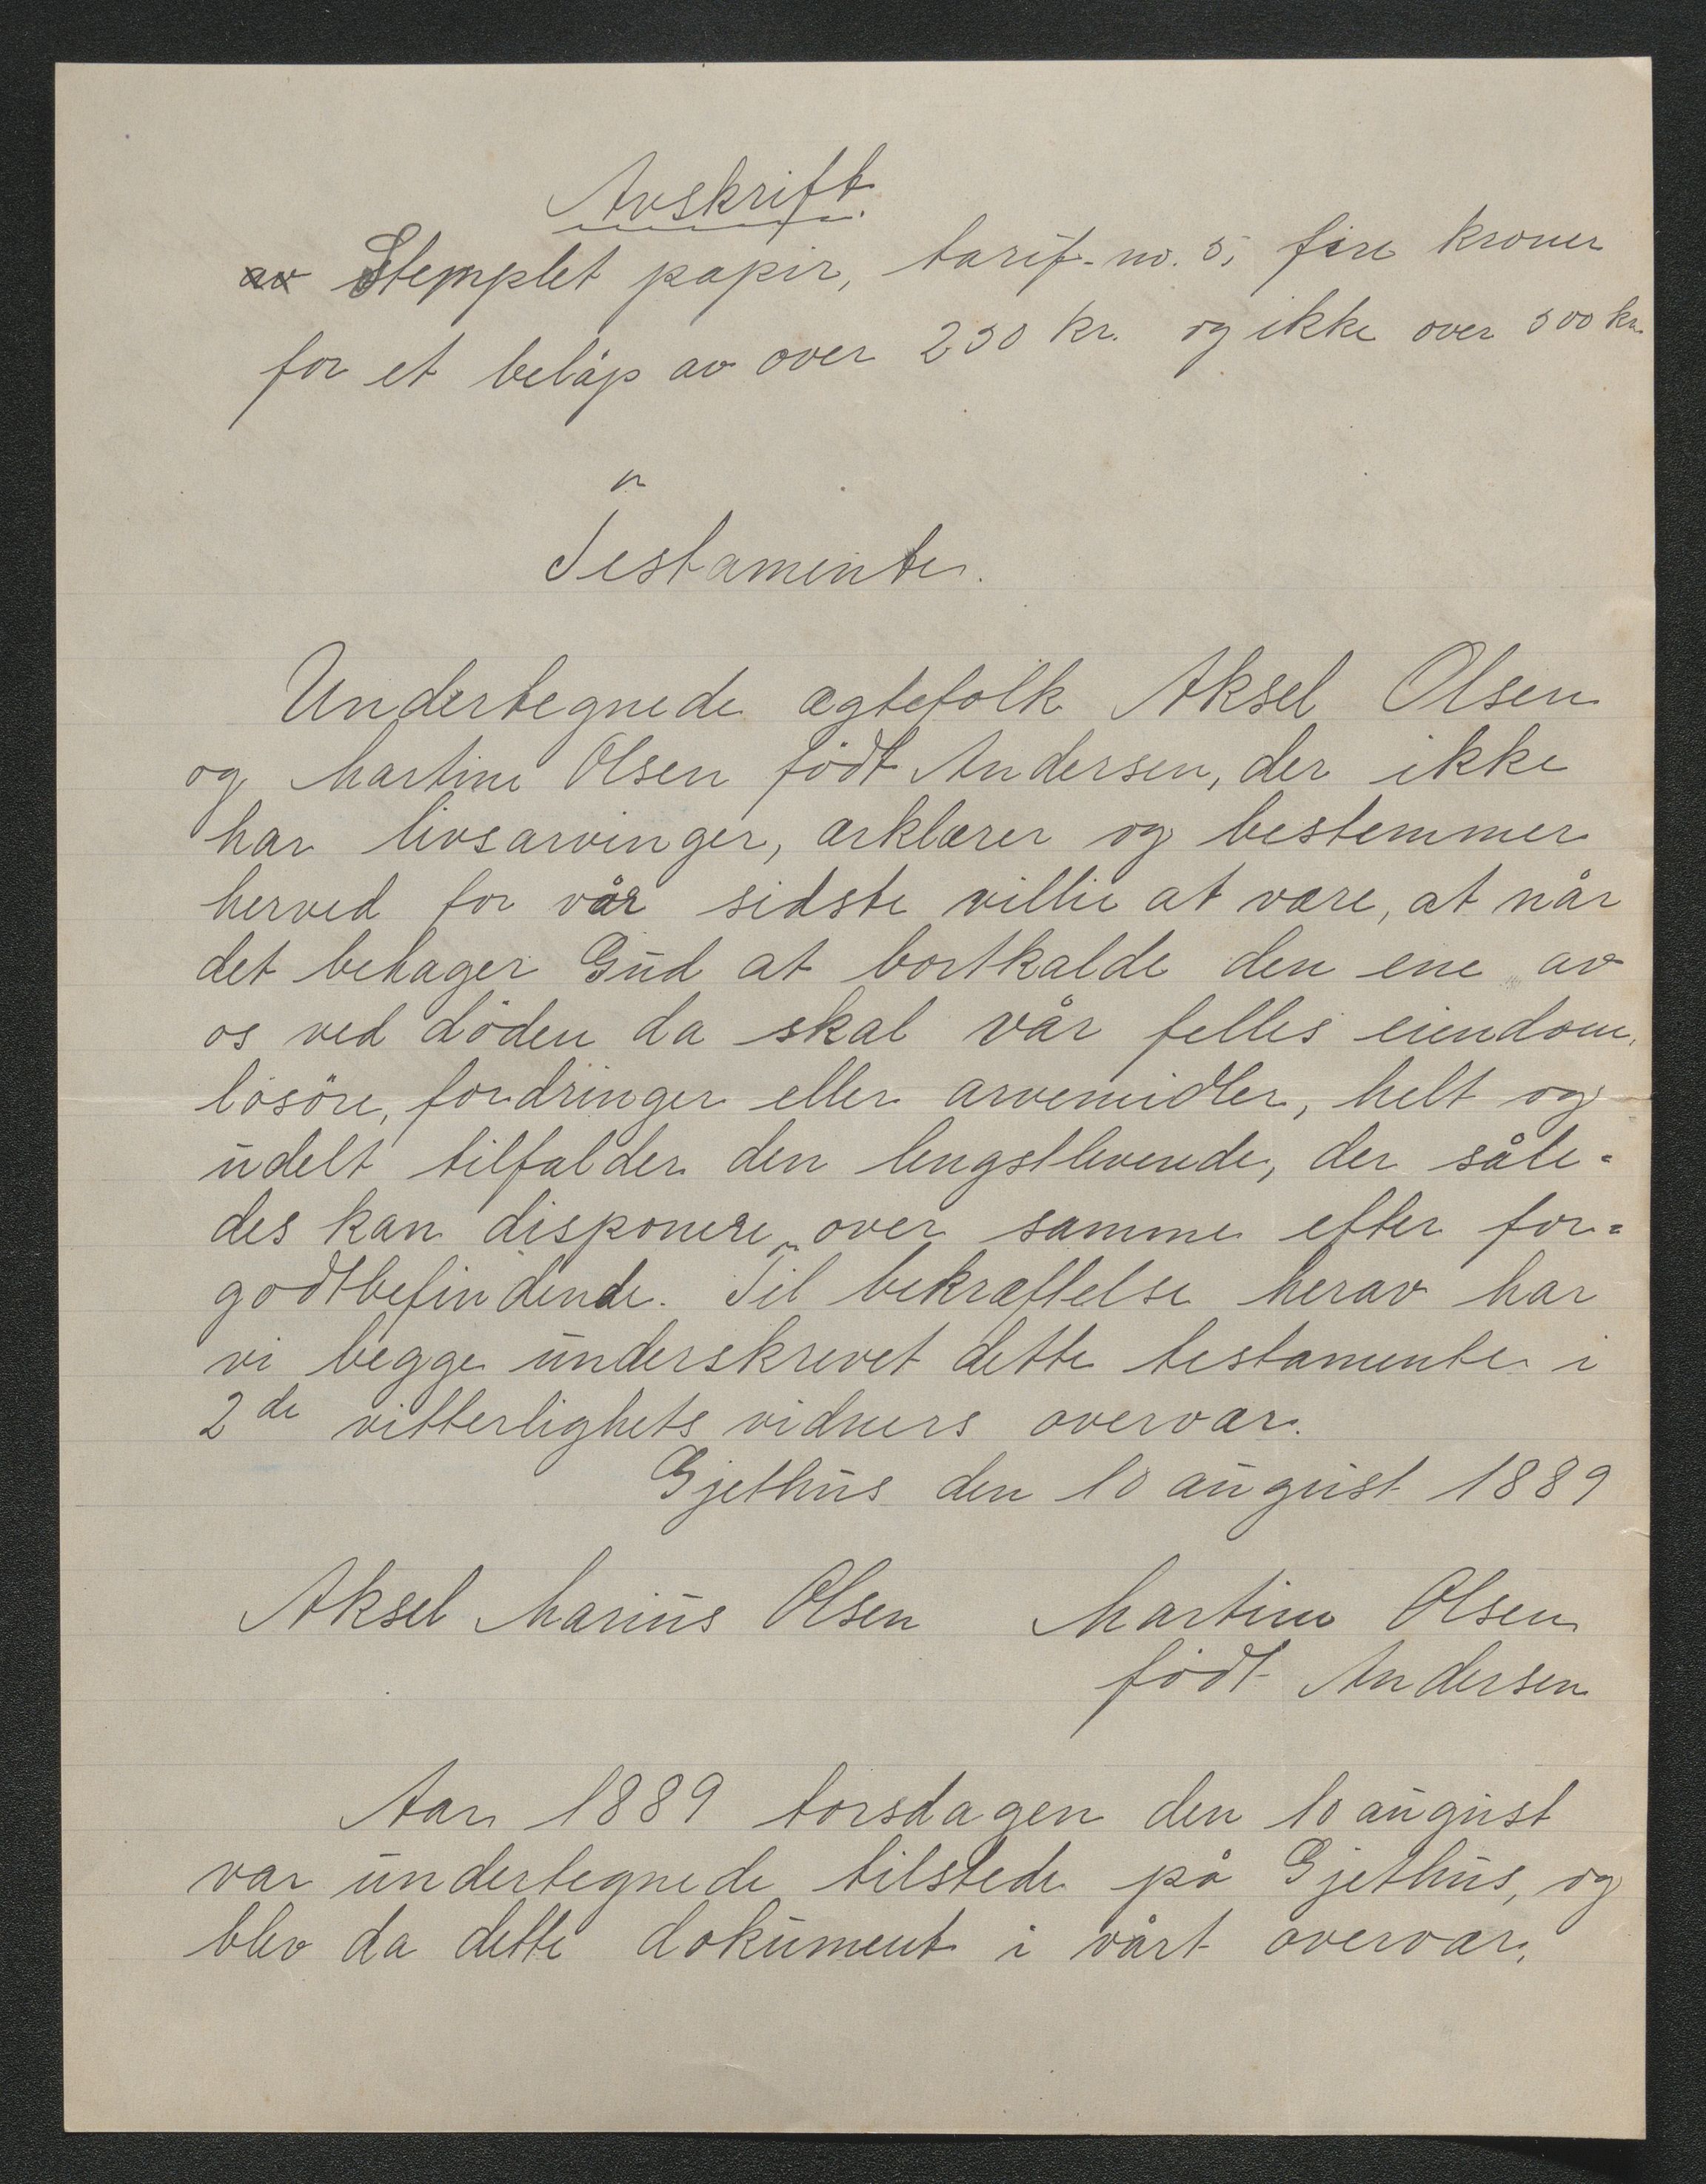 Avskrift.
av Stemplet papir, tarif-no. 5, fire kroner
for et beløp av over 250 kr. og ikke over 500 kr.
Testamente.
Undertegnede ægtefolk Aksel Olsen
og Martine Olsen födt Andersen, der ikke
har livsarvinger, ærklærer og bestemmer
herved for vår sidste villie at være, at når
det behager Gud at bortkalde den ene av
os ved döden da skal vår felles eiendom,
lösöre, fordringer eller arvemidler, helt og
udelt tilfalder den lengstlevende, der såle=
des kan disponere over samme efter for=
godtbefindende. Til bekræftelse herav har
vi begge underskrevet dette testamente i
2de vitterlighets vidners overvær.
Gjethus den 10 august 1889
Aksel Marius Olsen Martine Olsen
födt Andersen
Aar 1889 torsdagen den 10 august
var undertegnede tilstede på Gjethus, og
blev da dette dokument i vårt overvær,